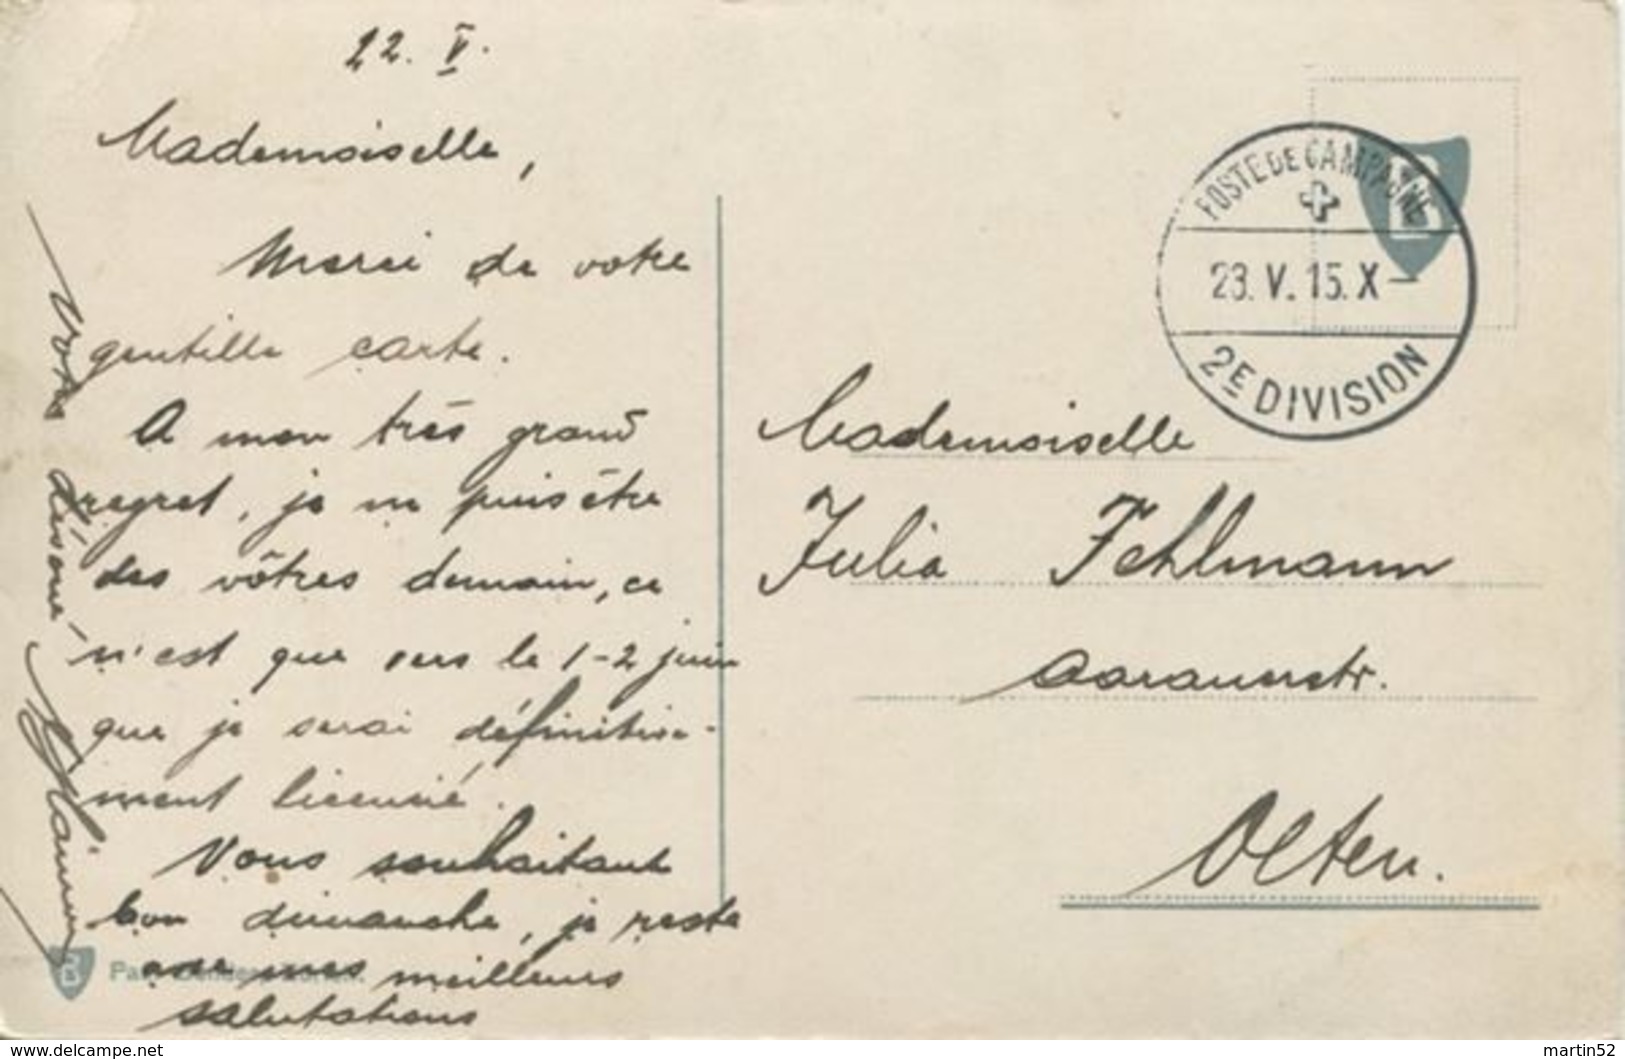 22. V.
Mademoiselle,
Merci de votre
gentille carte.
A mon très grand
regret, je ne puis être
des vôtres demain, ce
n'est que vers le 1-2 juin
que je serai définitive-
ment licencié.
Vous souhaitant
bon dimanche, je reste
avec mes meilleures
salutations
Votre dévoué
POSTE DE CAMPAGNE
23. V. 15. X-
2E DIVISION
B
Mademoiselle
Julia Fehlmann
Aarauerstr.
Olten.
B
www.delcampe.net
martin52